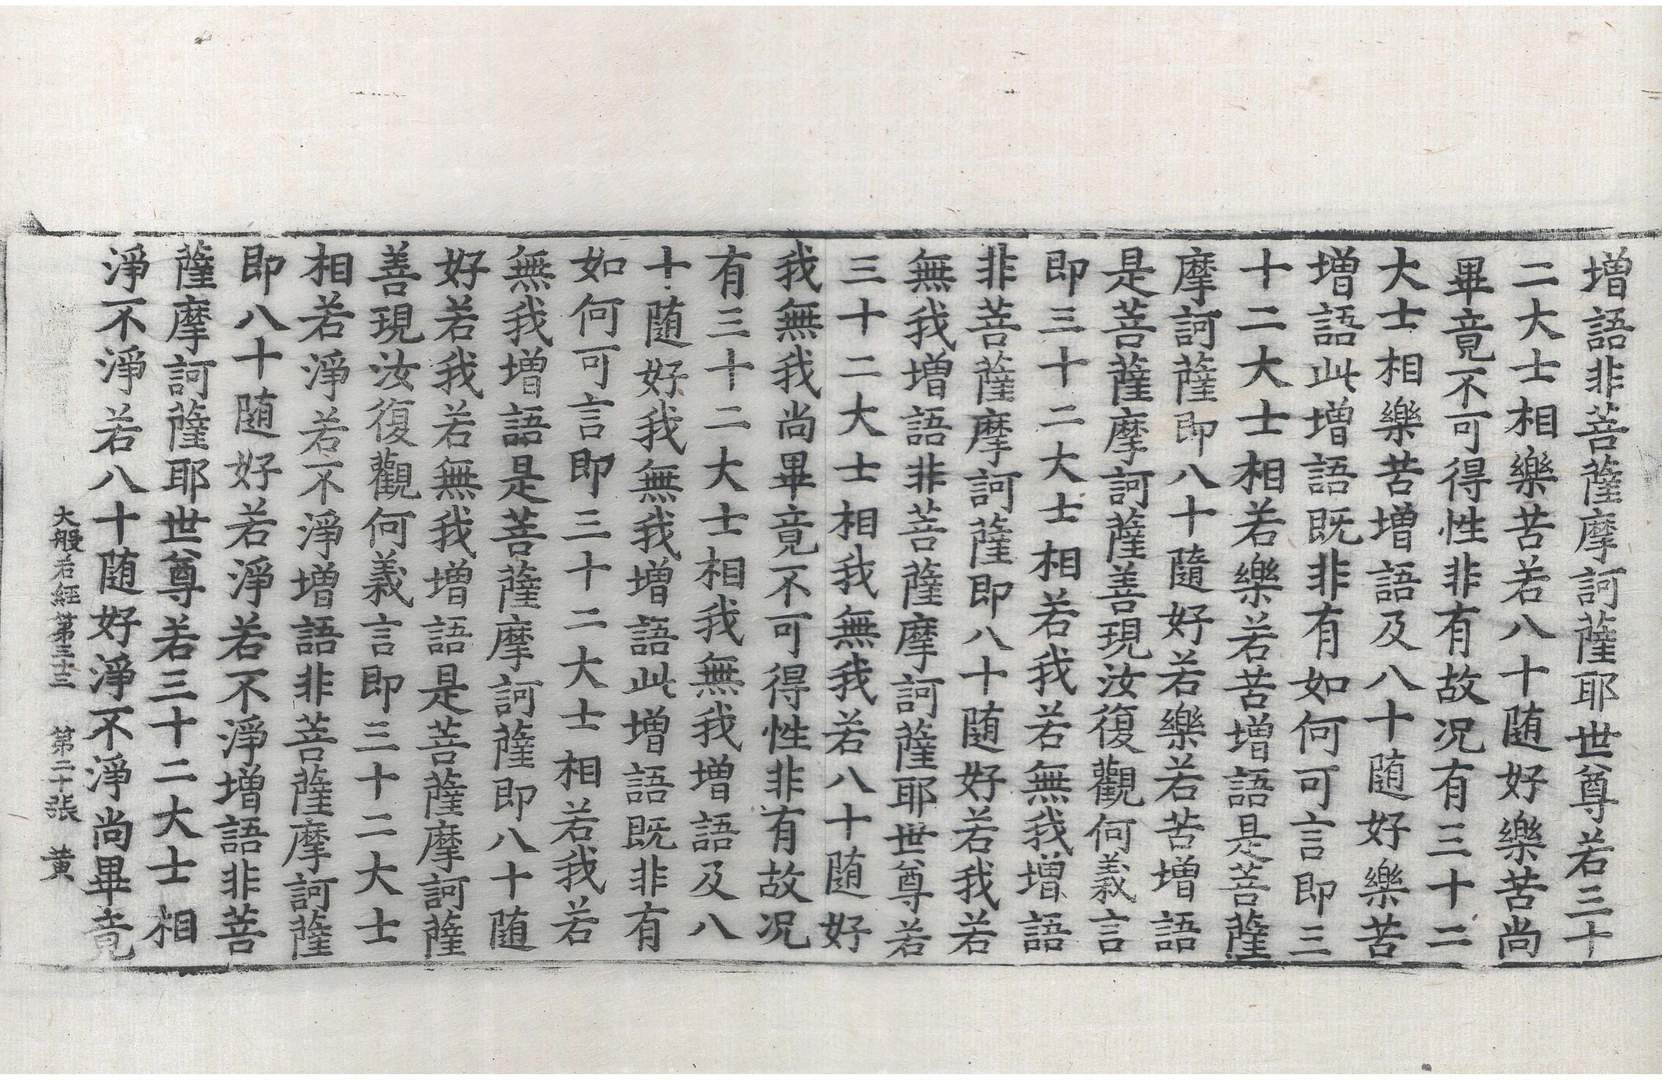 增語非菩薩摩訶薩耶世尊若三十
二大士相樂苦若八十随好樂苦尚
畢竟不可得性非有故况有三十二
大士相樂苦增語及八十随好樂苦
增語此增語既非有如何可言即三
十二大士相若樂若苦增語是菩薩
摩訶薩即八十隨好若樂若苦增語
是菩薩摩訶薩善現汝復觀何義言
即三十二大士相若我若無我增語
非菩薩摩訶薩即八十随好若我若
無我增語非菩薩摩訶薩耶世尊若
三十二大士相我無我若八十随好
我無我尚畢竟不可得性非有故况
有三十二大士相我無我增語及八
十随好我無我增語此增語既非有
如何可言即三十二大士相若我若
無我增語是菩薩摩訶薩即八十随
好若我若無我增語是菩薩摩訶薩
善現汝復觀何義言即三十二大士
相若淨若不淨增語非菩薩摩訶薩
即八十随好若淨若不淨增語非菩
薩摩訶薩耶世尊若三十二大士相
淨不淨若八十随好淨不淨尚畢竟
大般若經第三十三 第二十張 黄